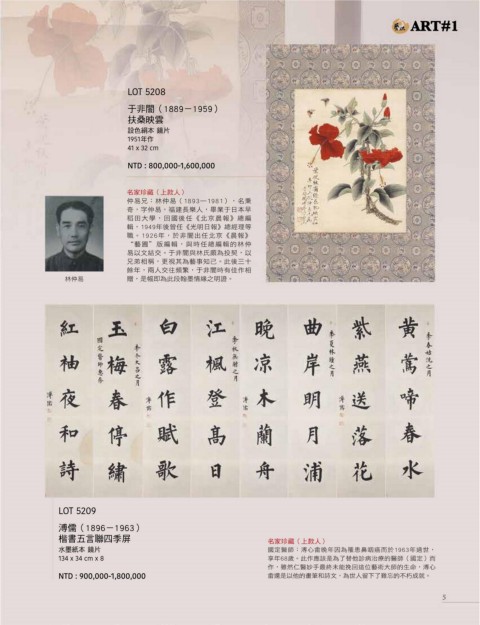 ART#1
LOT 5208
于非闇（1889－1959）
扶桑映雲
設色絹本 鏡片
1951年作
41 x 32 cm
NTD : 800,000-1,600,000
名家珍藏（上款人）
仲易兄：林仲易（1893—1981），名秉
奇，字仲易，福建長樂人，畢業于日本早
稻田大學，回國後任《北京晨報》總編
輯，1949年後曾任《光明日報》總經理等
職。1926年，於非闇出任北京《晨報》
“藝圃”版編輯，與時任總編輯的林仲
易以文結交。于非闇與林氏頗為投契，以
兄弟相稱，更視其為藝事知己。此後三十
餘年，兩人交往頻繁，于非闇時有佳作相
贈，是幅即為此段翰墨情緣之明證。
林仲易
黃鶯啼春水
季春姑洗之月
紫燕送落花
溥儒
曲岸明月浦
季夏林鐘之月
晚凉木蘭舟
溥儒
江楓登高日
季秋無射之月
白露作賦歌
溥儒
玉梅春停繡
季冬大呂之月
紅袖夜和詩
國定醫師惠存
溥儒
LOT 5209
溥儒（1896－1963）
楷書五言聯四季屏
水墨紙本 鏡片
134 x 34 cm x 8
NTD : 900,000-1,800,000
名家珍藏（上款人）
國定醫師：溥心畬晚年因為罹患鼻咽癌而於1963年過世，
享年68歲。此作應該是為了替他診病治療的醫師（國定）而
作，雖然仁醫妙手最終未能挽回這位藝術大師的生命，溥心
畬還是以他的畫筆和詩文，為世人留下了難忘的不朽成就。
5